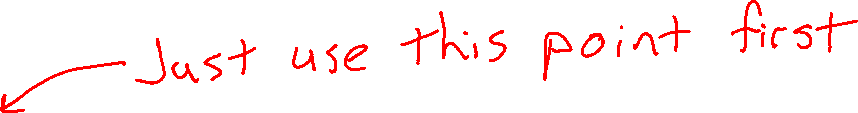 Just use this point first